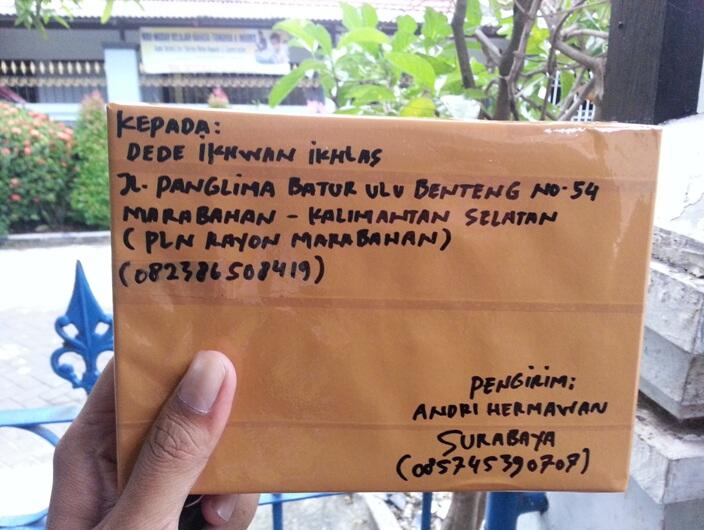 KEPADA:
DEDE IKHWAN IKHLAS
Jl. PANGLIMA BATUR ULU BENTENG NO-54
MARABAHAN - KALIMANTAN SELATAN
(PLN RAYON MARABAHAN)
(082386508419)
PENGIRIM:
ANDRI HERMAWAN
SURABAYA
(085745390707)